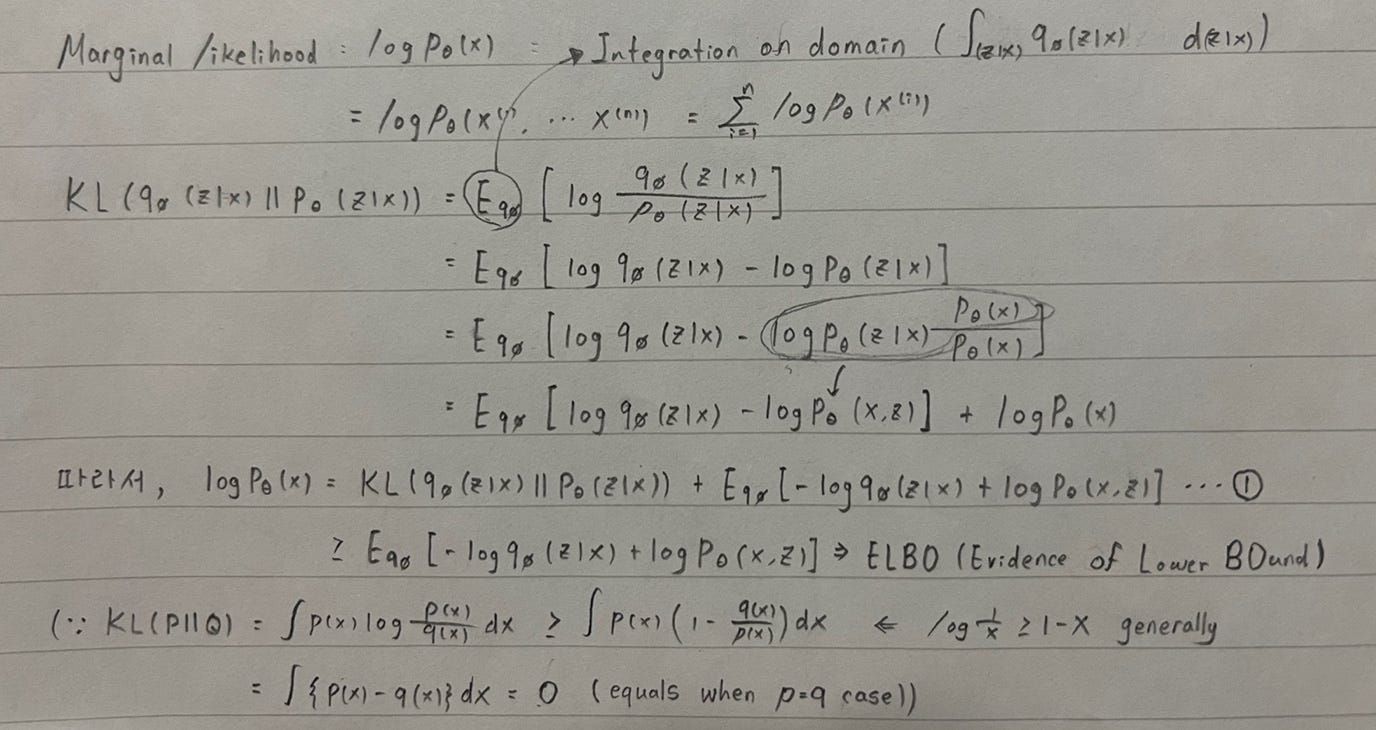 Marginal likelihood : log Pθ(x) = → Integration on domain ( ∫(z|x) qø(z|x) d(z|x) )
= log Pθ(x⁽¹⁾, ··· x⁽ⁿ⁾) = Σⁿᵢ₌₁ log Pθ(x⁽ⁱ⁾)
KL(qø(z|x) || Pθ(z|x)) = Eqø [ log qø(z|x) / Pθ(z|x) ]
= Eqø [ log qø(z|x) - log Pθ(z|x) ]
= Eqø [ log qø(z|x) - log Pθ(z|x) Pθ(x) / Pθ(x) ]
= Eqø [ log qø(z|x) - log Pθ(x,z) ] + log Pθ(x)
따라서, log Pθ(x) = KL(qø(z|x) || Pθ(z|x)) + Eqø [ - log qø(z|x) + log Pθ(x,z) ] ··· ①
≥ Eqø [ - log qø(z|x) + log Pθ(x,z) ] ⇒ ELBO (Evidence of Lower BOund)
(∵ KL(P||Q) = ∫ p(x) log p(x)/q(x) dx ≥ ∫ p(x) (1 - q(x)/p(x)) dx ⇐ log 1/x ≥ 1-x generally
= ∫ {p(x) - q(x)} dx = 0 (equals when p=q case))